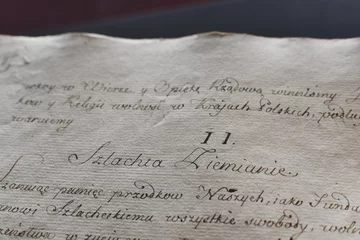 wszy w Wierze y Opiekę Rządową winniśmy
kow y Religii wolność w Krajach Polskich, podłu
waruiemy
II.
Szlachta Ziemianie.
zanuiąc pamięć przodkow Naszych, iako Funda
anowi Szlacheckiemu wszystkie swobody, woln